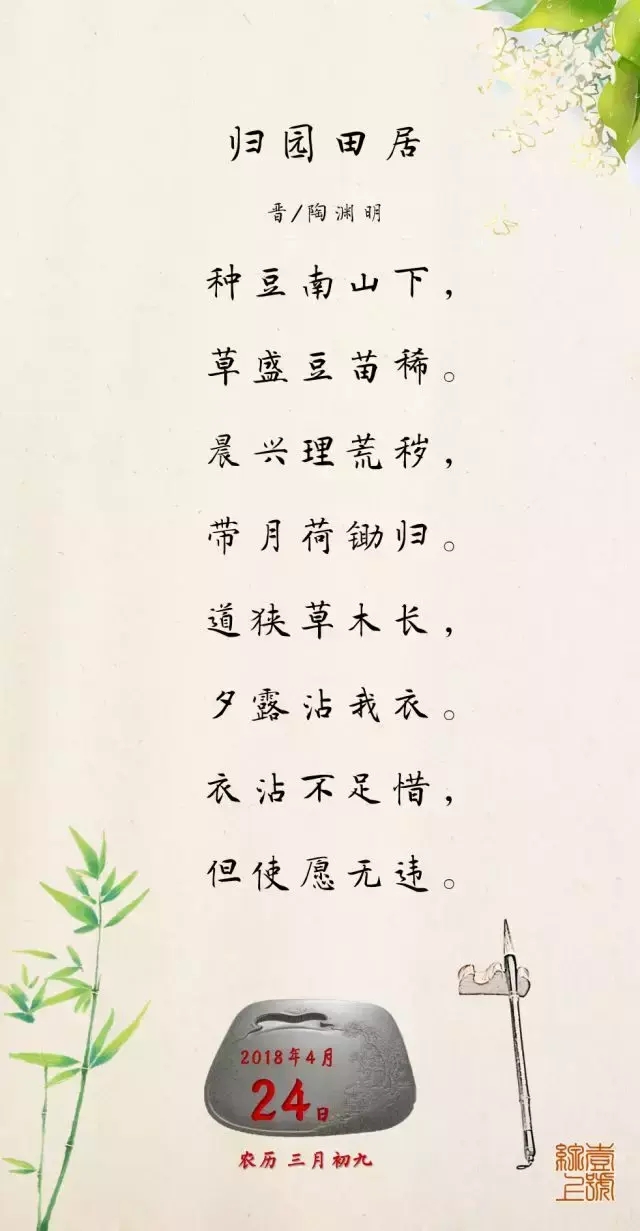 归园田居
晋/陶渊明
种豆南山下，
草盛豆苗稀。
晨兴理荒秽，
带月荷锄归。
道狭草木长，
夕露沾我衣。
衣沾不足惜，
但使愿无违。
2018年4月
24日
农历 三月初九